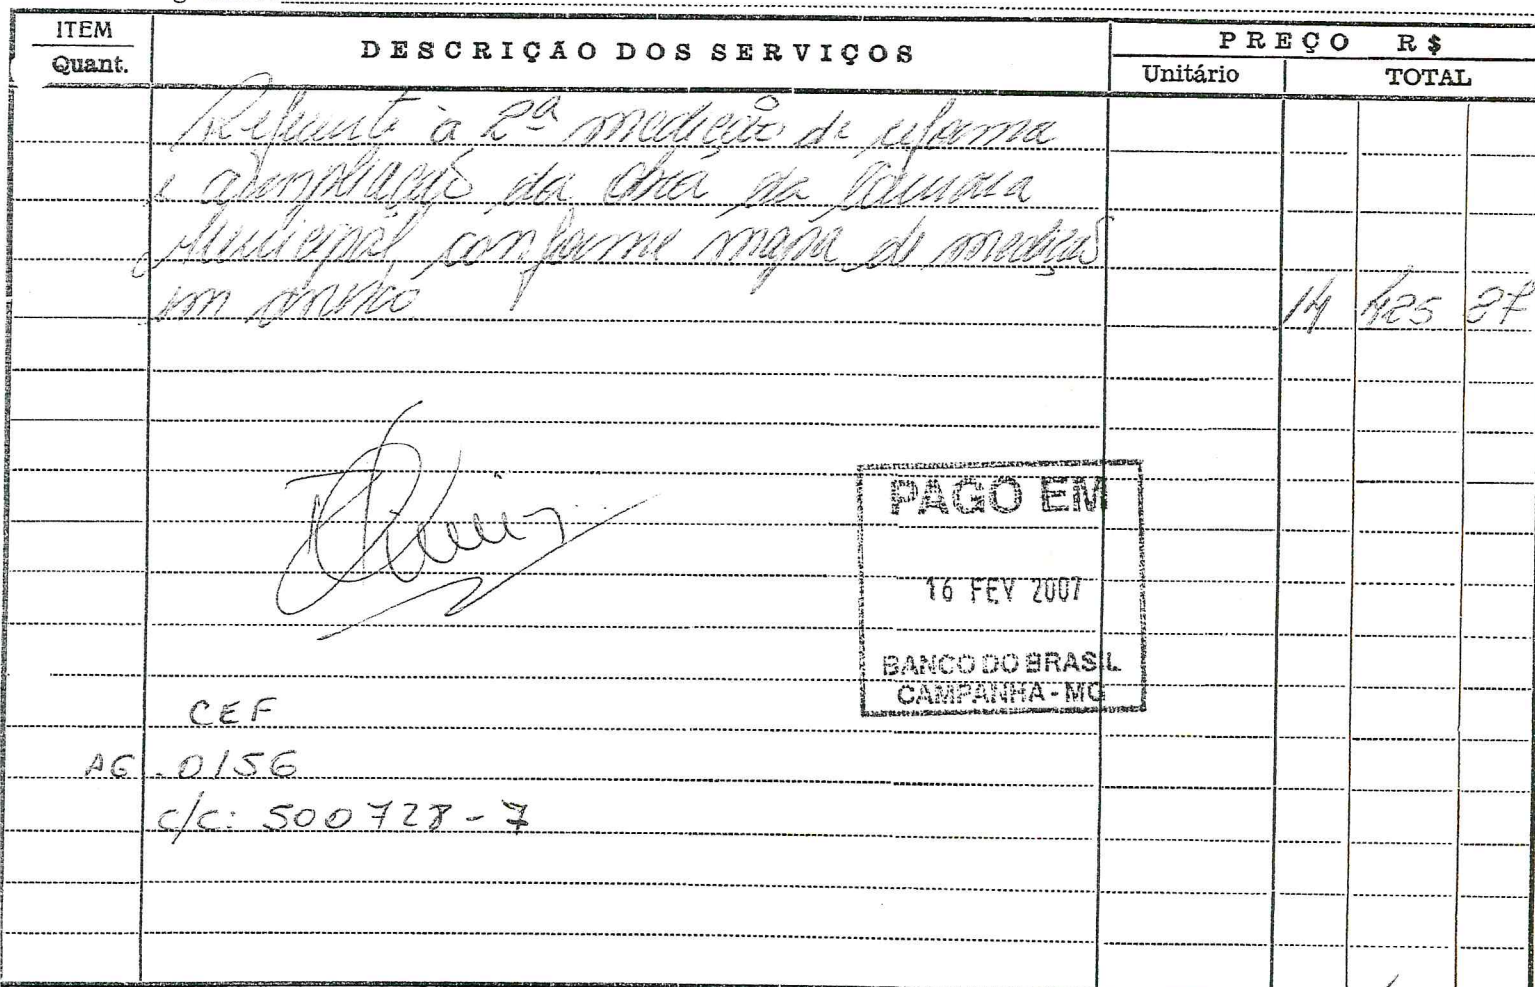 ITEM
Quant.
DESCRIÇÃO DOS SERVIÇOS
PREÇO R$
Unitário
TOTAL
Referente à 2ª medição de reforma
e ampliação da obra da Câmara
Municipal, conforme mapa de medição
em anexo
14
PAGO EM
16 FEV 2007
BANCO DO BRASIL
CAMPANHA - MG
CEF
AG. 0156
c/c: 500728-7